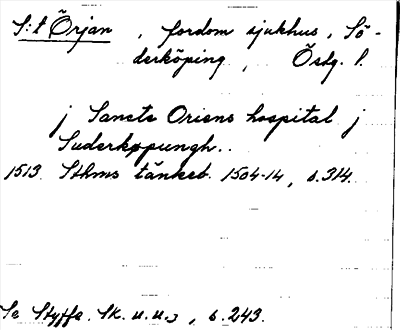 S:t Örjan, fordom sjukhus, Sö-
derköping, Östg. l.
j Sancte Oriens hospital j
Suderkøpungh..
1513. Sthms tänkeb. 1504-14, s. 314.
Se Styffe. Sk. u. u.3, s. 243.